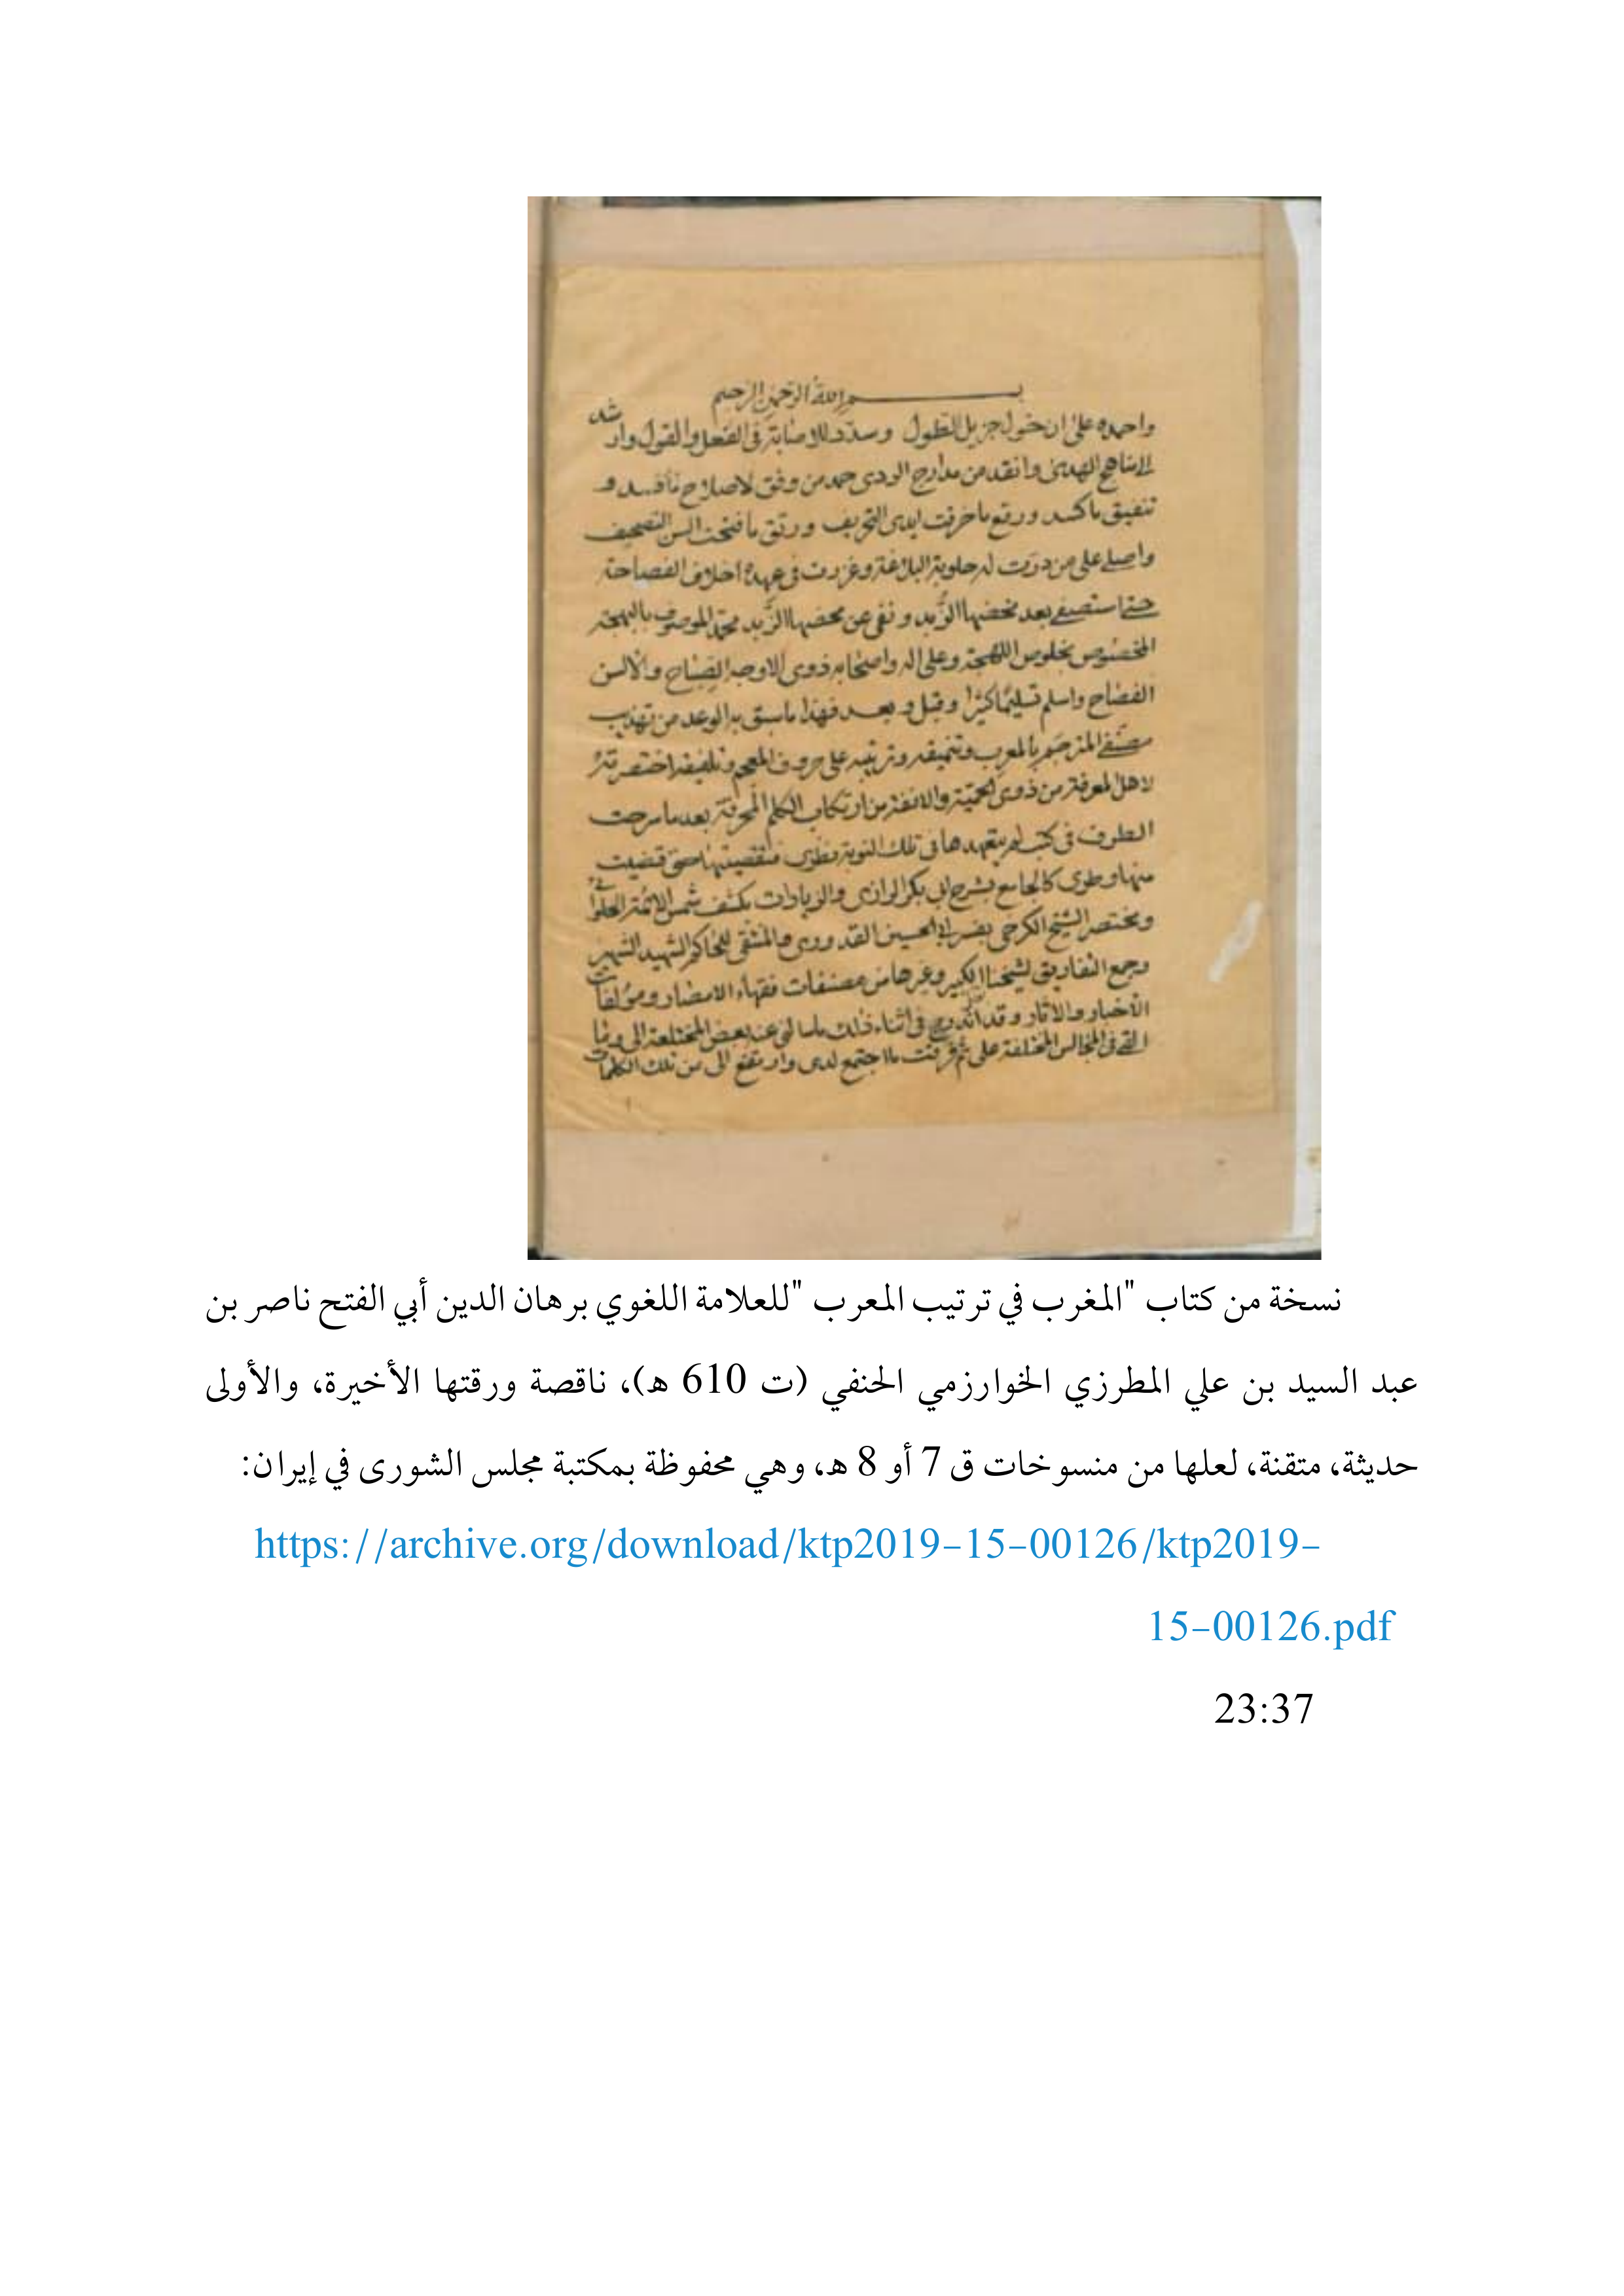 بسم الله الرحمن الرحيم
واحمده على ان خول جزيل الطول وسدد للاصابة في الفعل والقول وارشد
الى مناهج الهدى وانقد من مدارج الردى حمد من وفق لاصلاح ما فسد و
تنفيق ما كسد ورقع ما خرقت ايدى التحريف ورتق ما فتحت السن التصحيف
واصلى على من درت له حلوبة البلاغة وغزرت في عهده اخلاف الفصاحة
حتى استصفى بعد مخضها الزبد ونفى عن محضها الزبد محمد الموصوف بالبهجة
المخصوص بخلوص اللهجة وعلى اله واصحابه ذوى الاوجه الصباح والالسن
الفصاح واسلم تسليما كثيرا وقبل وبعد فهذا ما سبق به الوعد من تهذيب
مصنفى المترجم بالمعرب وتنميقه وترتيبه على حروف المعجم وتلفيقه اختصرته
لاهل المعرفة من ذوى الحمية والانفة من ارتكاب الكلم المحرفة بعد ما سرحت
الطرف في كتب لم يتعهدها في تلك النوبة نظرى فتقصيتها حتى قضيت
منها وطرى كالجامع بشرح ابى بكر الرازى والزيادات بكشف شمس الائمة الحلوائى
ومختصر الشيخ الكرخى بتفسير ابى الحسين القدورى والمنتقى للحاكم الشهيد الشهير
وجمع التفاريق لشيخنا الكبير وغيرها من مصنفات فقهاء الامصار ومؤلفات
الأخبار والاثار وقد اندرج في اثناء ذلك ما سالنى عنه بعض المختلفة الى وما
القى في المجالس المختلفة على ثم فرقت ما اجتمع لدى وارتفع الى من تلك الكلمات
نسخة من كتاب "المغرب في ترتيب المعرب "للعلامة اللغوي برهان الدين أبي الفتح ناصر بن
عبد السيد بن علي المطرزي الخوارزمي الحنفي (ت 610 هـ)، ناقصة ورقتها الأخيرة، والأولى
حديثة، متقنة، لعلها من منسوخات ق 7 أو 8 هـ، وهي محفوظة بمكتبة مجلس الشورى في إيران:
https://archive.org/download/ktp2019-15-00126/ktp2019-
15-00126.pdf
23:37